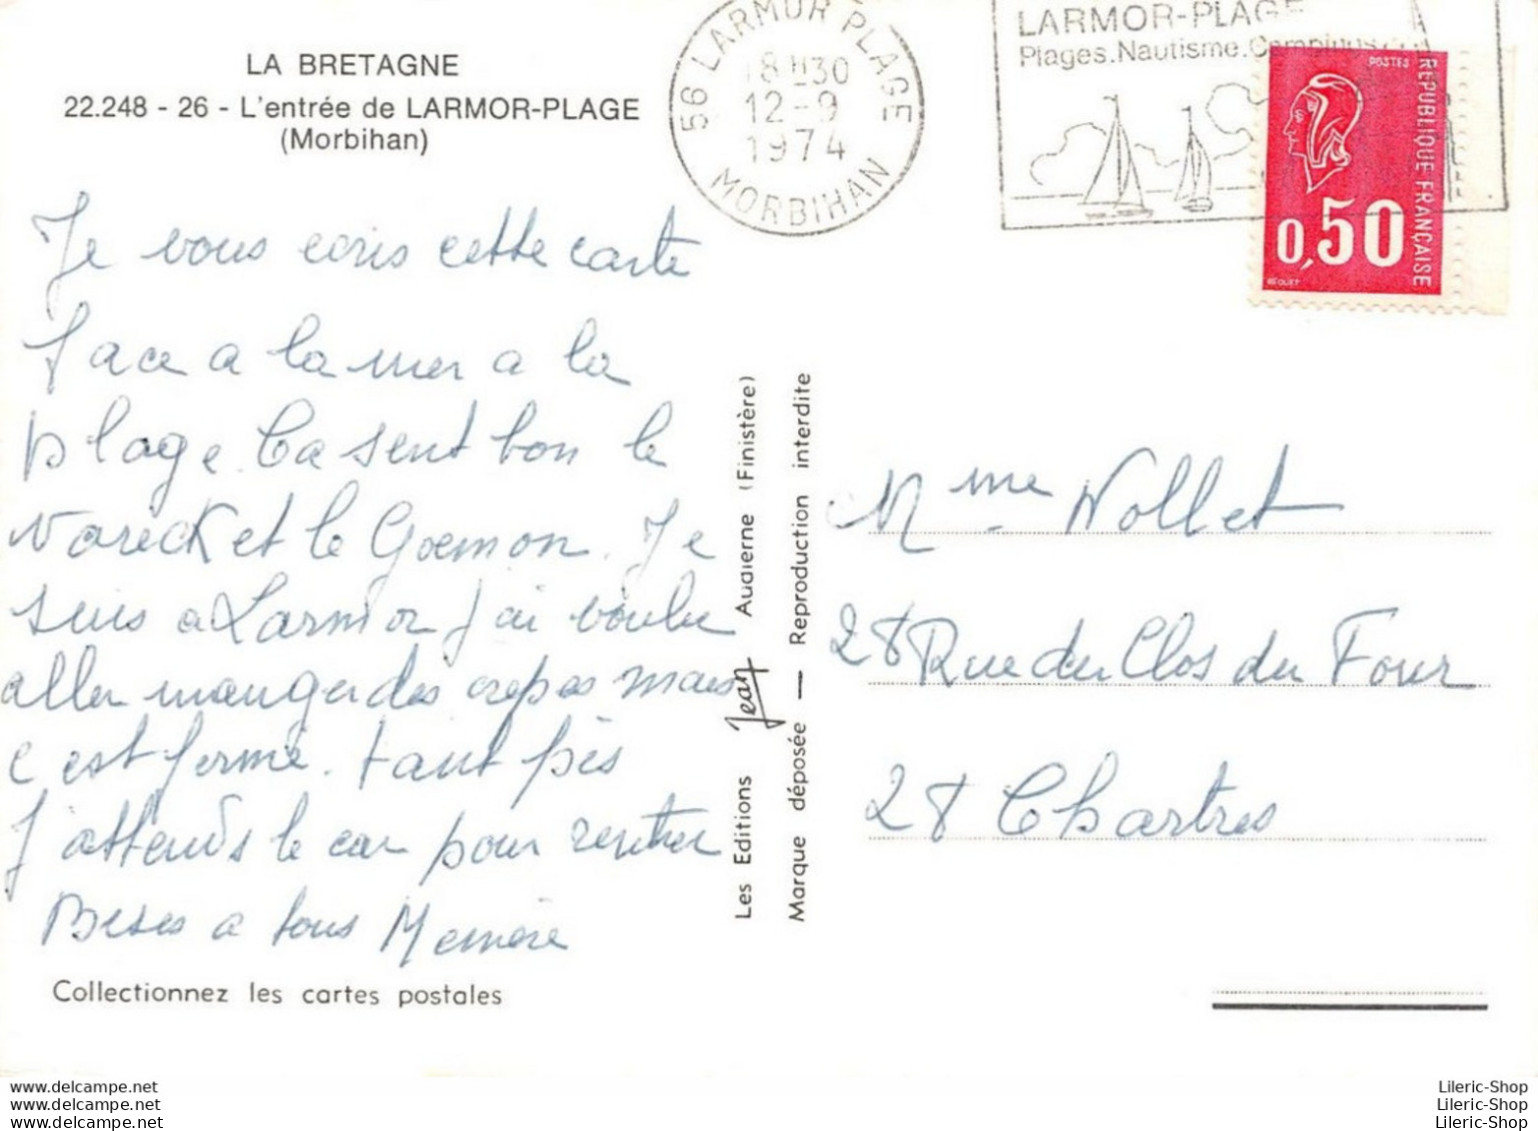 LA BRETAGNE
22.248 - 26 - L'entrée de LARMOR-PLAGE
(Morbihan)
56 LARMOR PLAGE
18H30
12-9
1974
MORBIHAN
LARMOR-PLAGE
Plages.Nautisme.Campings
POSTES
REPUBLIQUE FRANÇAISE
0,50
BEQUET
Je vous ecris cette carte
face a la mer a la
plage. Ca sent bon le
vareck et le Goemon. Je
suis a Larmor J'ai voulu
aller manger des crepes mais
c est fermé. tant pis
J'attends le car pour rentrer
Bises a tous Memère
Collectionnez les cartes postales
Les Editions Jean Audierne (Finistère)
Marque déposée — Reproduction interdite
Mme Nollet
28 Rue du Clos du Four
28 Chartres
www.delcampe.net
www.delcampe.net
www.delcampe.net
Lileric-Shop
Lileric-Shop
Lileric-Shop